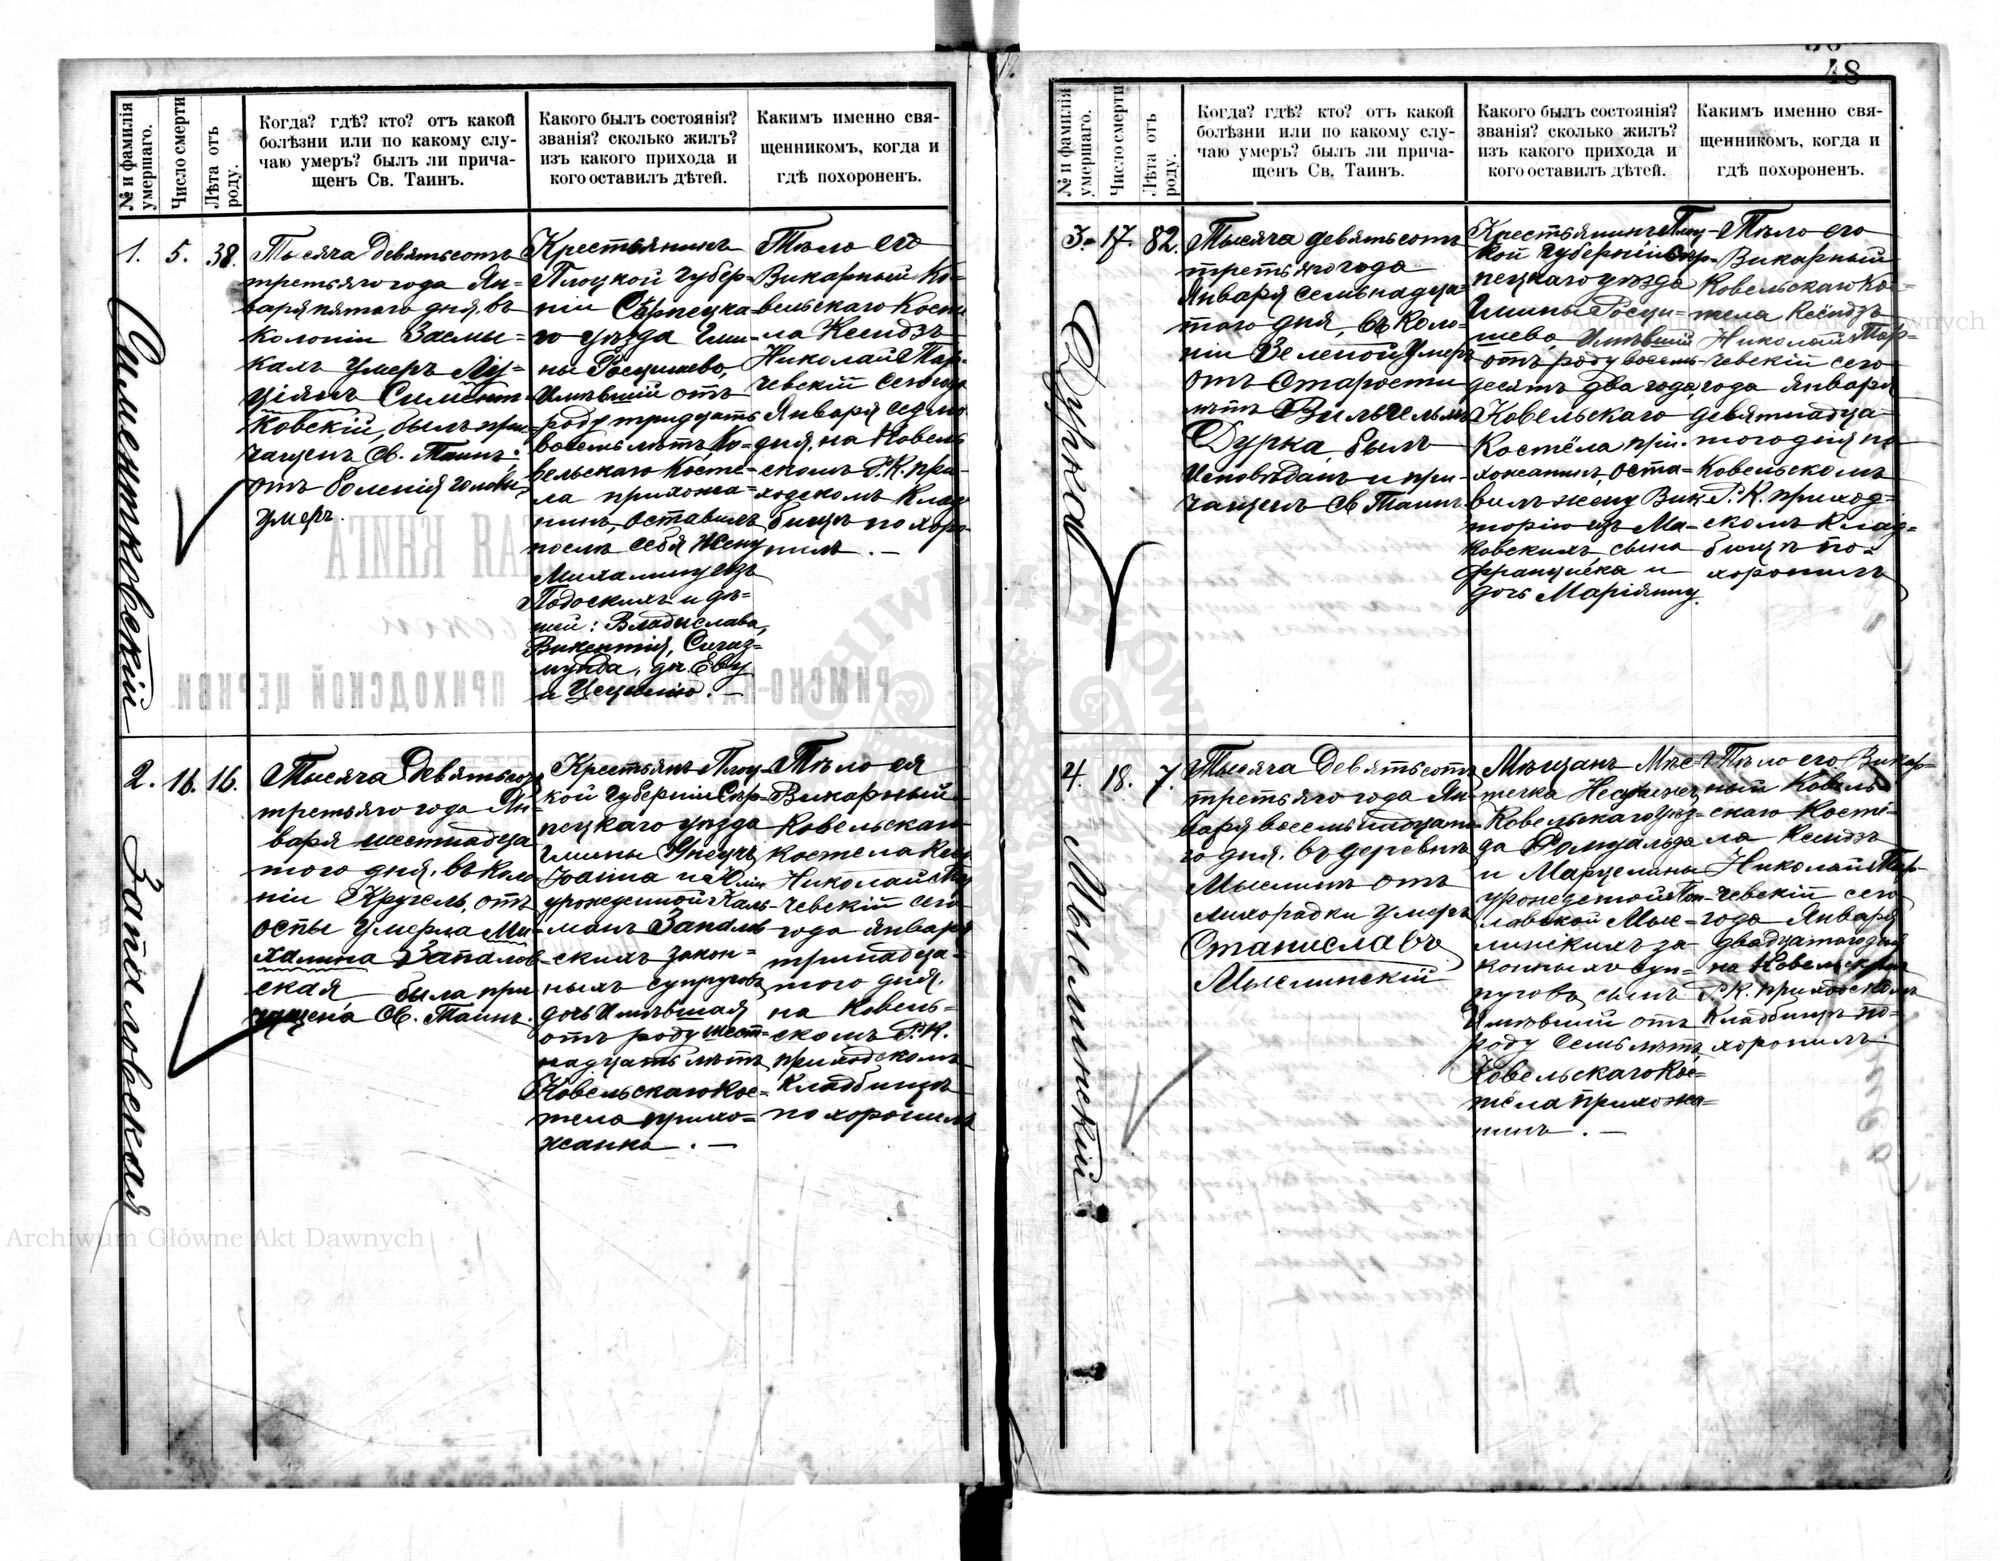 48
№ и фамилія умершаго.
Число смерти
Лѣта отъ роду.
Когда? гдѣ? кто? отъ какой
болѣзни или по какому слу-
чаю умеръ? былъ ли прича-
щенъ Св. Таинъ.
Какого былъ состоянія?
званія? сколько жилъ?
изъ какого прихода и
кого оставилъ дѣтей.
Какимъ именно свя-
щенникомъ, когда и
гдѣ похороненъ.
1.
Симентковскій
5.
38.
Тысяча девятьсотъ
третьяго года Ян-
варя пятого дня, въ
колоніи Засмы-
кахъ умеръ Лу-
ціянъ Симент-
ковскій, былъ при-
чащенъ Св. Таинъ.
отъ боленія головы
умеръ.
Крестьянинъ
Плоцкой губер-
ніи Сѣрпецка
го уѣзда Гми-
ны Госцишево,
Имѣвшій отъ
роду тридцать
восемь лѣтъ, Ко-
вельскаго Косте-
ла прихожа-
нинъ, оставилъ
послѣ себя жену
Михалину изъ
Подоскихъ и дѣ-
тей: Владислава,
Викентія, Сигиз-
мунда, до. Еву
и Цецилію. —
Тѣло его
Викарный Ко-
вельскаго Косте
ла Ксендзъ
Николай Тар-
чевскій сего года
Января седьмо
дня, на Ковель
скомъ Р. К. при-
ходскомъ Клад
бищѣ похоро
нилъ. —
2.
Запаловская
16.
16.
Тысяча Девятьсотъ
третьяго года Ян-
варя шестнадца
того дня, въ коло
ніи Кругель, отъ
оспы умерла Ми-
халина Запалов-
ская, была при
чащена Св. Таинъ.
Крестьянъ Плоц-
кой губерніи Сѣр-
пецкаго уѣзда
Гмины
Іоанна и Юліи
урожденной Каль-
манъ Запалов
скихъ закон-
ныхъ супруговъ
дочь Имѣвшая
отъ роду шест-
надцать лѣтъ
Ковельскаго Кос-
тела прихо-
жанка. —
Тѣло ея
Викарный
Ковельскаго
костела Ксендзъ
Николай Тар
чевскій сего
года Января
тринадца-
того дня,
на Ковель-
скомъ Р. К.
приходскомъ
Кладбищѣ
похоронилъ
№ и фамилія умершаго.
Число смерти
Лѣта отъ роду.
Когда? гдѣ? кто? отъ какой
болѣзни или по какому слу-
чаю умеръ? былъ ли прича-
щенъ Св. Таинъ.
Какого былъ состоянія?
званія? сколько жилъ?
изъ какого прихода и
кого оставилъ дѣтей.
Какимъ именно свя-
щенникомъ, когда и
гдѣ похороненъ.
3.
Дурка
17.
82.
Тысяча девятьсотъ
третьяго года
Января семьнадца-
того дня, въ Коло-
ніи Зеленой умеръ
отъ Старости
лѣтъ Вильгельмъ
Дурка, былъ
Исповѣданъ и при-
чащенъ Св. Таинъ
Крестьянинъ Плоц-
кой губерніи Сѣр-
пецкаго уѣзда
Гмины Госци-
шево, Имѣвшій
отъ роду восемь-
десятъ два года,
Ковельскаго
Костёла при-
хожанинъ, оста-
вилъ жену Вик-
торію изъ Ма-
ковскихъ, сына
Франциска и
дочь Маріянну.
Тѣло его
Викарный
Ковельскаго Кос-
тела Ксендзъ
Николай Тар-
чевскій сего
года Января
девятнадца-
того дня на
Ковельскомъ
Р. К. приход-
скомъ Клад-
бищѣ по-
хоронилъ
4.
Мыслинскій
18.
7.
Тысяча Девятьсотъ
третьяго года Ян-
варя восемьнадцата-
го дня, въ деревнѣ
Мыслинѣ отъ
лихорадки умеръ
Станиславъ
Мыслинскій
Мѣщанъ Мѣс-
течка
Ковельскаго уѣз-
да Ромуальда
и Марцелины
урожденной
Мыс-
линскихъ за-
конныхъ суп-
руговъ, сынъ
Имѣвшій отъ
роду семь лѣтъ,
Ковельскаго Кос-
тёла прихожа-
нинъ. —
Тѣло его Викар-
ный Ковель-
скаго Костё-
ла Ксендзъ
Николай Тар-
чевскій сего
года Января
двадцатого дня
на Ковельскомъ
Р. К. приходскомъ
Кладбищѣ по-
хоронилъ.
Archiwum Główne Akt Dawnych
Archiwum Główne Akt Dawnych